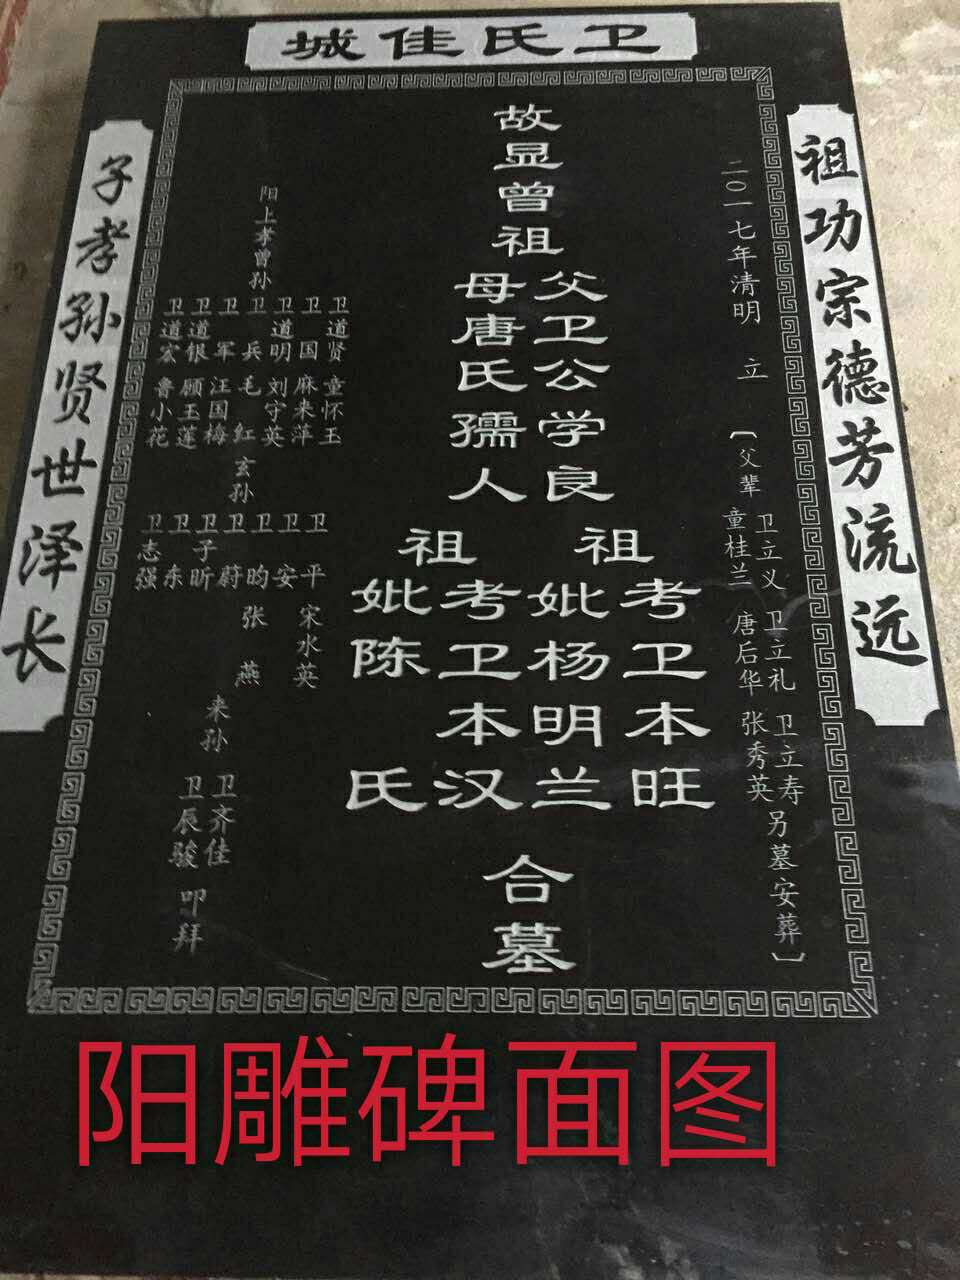 卫氏佳城
祖功宗德芳流远
二〇一七年清明 立
〔父辈 卫立义 童桂兰 卫立礼 唐后华 卫立寿 张秀英 另墓安葬〕
故显曾祖
父卫公学良
母唐氏孺人
祖考卫本旺
妣杨明兰
祖考卫本汉
妣陈氏
合墓
阳上孝曾孙
卫道贤 童怀玉
卫国 麻来萍
卫道明 刘守英
卫兵 毛红
卫军 汪国梅
卫道银 顾玉莲
卫道宏 鲁小花
玄孙
卫平 宋水英
卫安
卫昀
卫蔚 张燕
卫子昕
卫东
卫志强
来孙
卫齐佳
卫辰骏
叩拜
子孝孙贤世泽长
阳雕碑面图